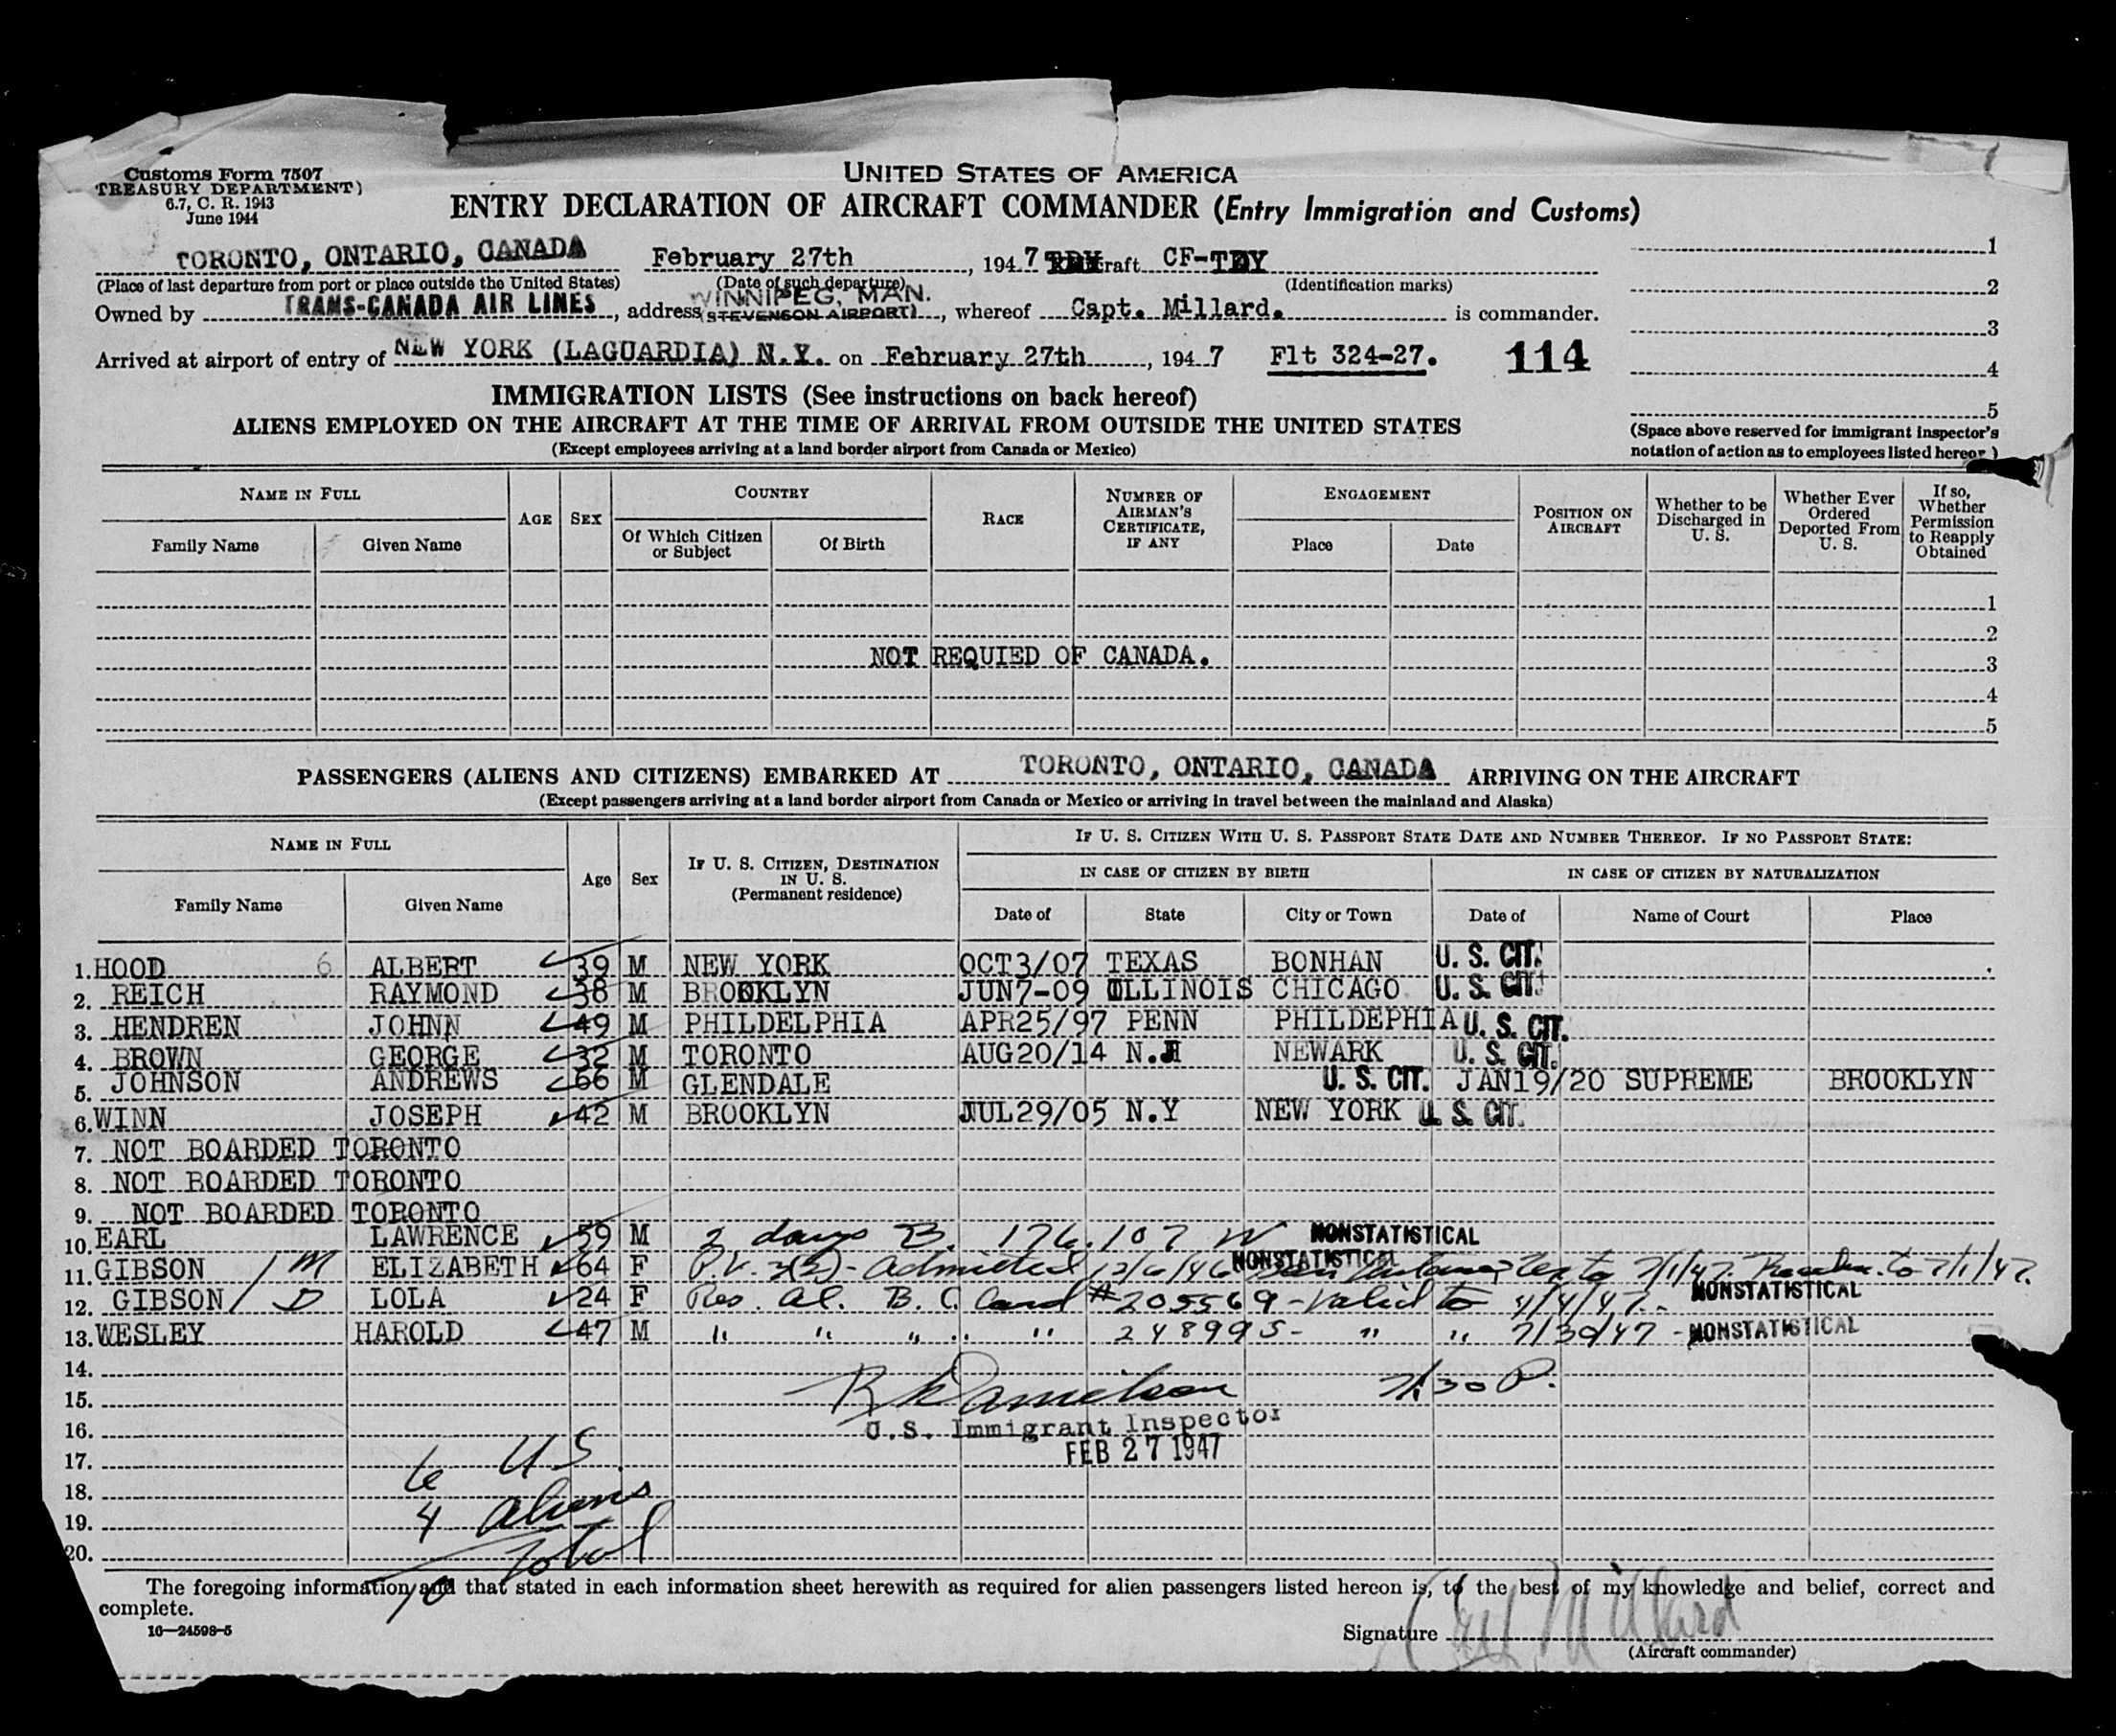 Customs Form 7507
TREASURY DEPARTMENT)
6.7, C. R. 1943
June 1944
UNITED STATES OF AMERICA
ENTRY DECLARATION OF AIRCRAFT COMMANDER (Entry Immigration and Customs)
TORONTO, ONTARIO, CANADA February 27th, 1947 raft CF-TDY
(Place of last departure from port or place outside the United States) (Date of such departure) (Identification marks)
Owned by TRAMS-CANADA AIR LINES, address WINNIPEG, MAN. (STEVENSON AIRPORT), whereof Capt. Millard. is commander.
Arrived at airport of entry of NEW YORK (LAGUARDIA) N.Y. on February 27th, 1947 Flt 324-27. 114
1
2
3
4
5
(Space above reserved for immigrant inspector's
notation of action as to employees listed hereon)
IMMIGRATION LISTS (See instructions on back hereof)
ALIENS EMPLOYED ON THE AIRCRAFT AT THE TIME OF ARRIVAL FROM OUTSIDE THE UNITED STATES
(Except employees arriving at a land border airport from Canada or Mexico)
NAME IN FULL
Family Name Given Name
AGE SEX
COUNTRY
Of Which Citizen or Subject Of Birth
RACE
NUMBER OF AIRMAN'S CERTIFICATE, IF ANY
ENGAGEMENT
Place Date
POSITION ON AIRCRAFT
Whether to be Discharged in U. S.
Whether Ever Ordered Deported From U. S.
If so, Whether Permission to Reapply Obtained
1
2
NOT REQUIED OF CANADA. 3
4
5
PASSENGERS (ALIENS AND CITIZENS) EMBARKED AT TORONTO, ONTARIO, CANADA ARRIVING ON THE AIRCRAFT
(Except passengers arriving at a land border airport from Canada or Mexico or arriving in travel between the mainland and Alaska)
NAME IN FULL
Family Name Given Name
Age Sex
IF U. S. CITIZEN, DESTINATION IN U. S. (Permanent residence)
IF U. S. CITIZEN WITH U. S. PASSPORT STATE DATE AND NUMBER THEREOF. IF NO PASSPORT STATE:
IN CASE OF CITIZEN BY BIRTH IN CASE OF CITIZEN BY NATURALIZATION
Date of State City or Town Date of Name of Court Place
1. HOOD 6 ALBERT 39 M NEW YORK OCT3/07 TEXAS BONHAN U. S. CIT.
2. REICH RAYMOND 38 M BROOKLYN JUN7-09 ILLINOIS CHICAGO U. S. CIT.
3. HENDREN JOHNN 49 M PHILDELPHIA APR25/97 PENN PHILDEPHIA U. S. CIT.
4. BROWN GEORGE 32 M TORONTO AUG20/14 N.J NEWARK U. S. CIT.
5. JOHNSON ANDREWS 66 M GLENDALE U. S. CIT. JAN19/20 SUPREME BROOKLYN
6. WINN JOSEPH 42 M BROOKLYN JUL29/05 N.Y NEW YORK U. S. CIT.
7. NOT BOARDED TORONTO
8. NOT BOARDED TORONTO
9. NOT BOARDED TORONTO
10. EARL LAWRENCE 59 M 2 days B. 176.107 W NONSTATISTICAL
11. GIBSON M ELIZABETH 64 F P.V. 3(2) - Admitted 12/6/46 NONSTATISTICAL to 7/1/47. to 7/1/47.
12. GIBSON D LOLA 24 F Res. Al. B. C. Card #205569 - Valid to 4/4/47. NONSTATISTICAL
13. WESLEY HAROLD 47 M " " " " " 248995 - " " 7/30/47 - NONSTATISTICAL
14.
15. R Danielson 7:30 P.
16. U.S. Immigrant Inspector
17. FEB 27 1947
6 US
18.
19. 4 Aliens
20.
10 Total
The foregoing information and that stated in each information sheet herewith as required for alien passengers listed hereon is, to the best of my knowledge and belief, correct and
complete.
16—24598-5
Signature Millard
(Aircraft commander)